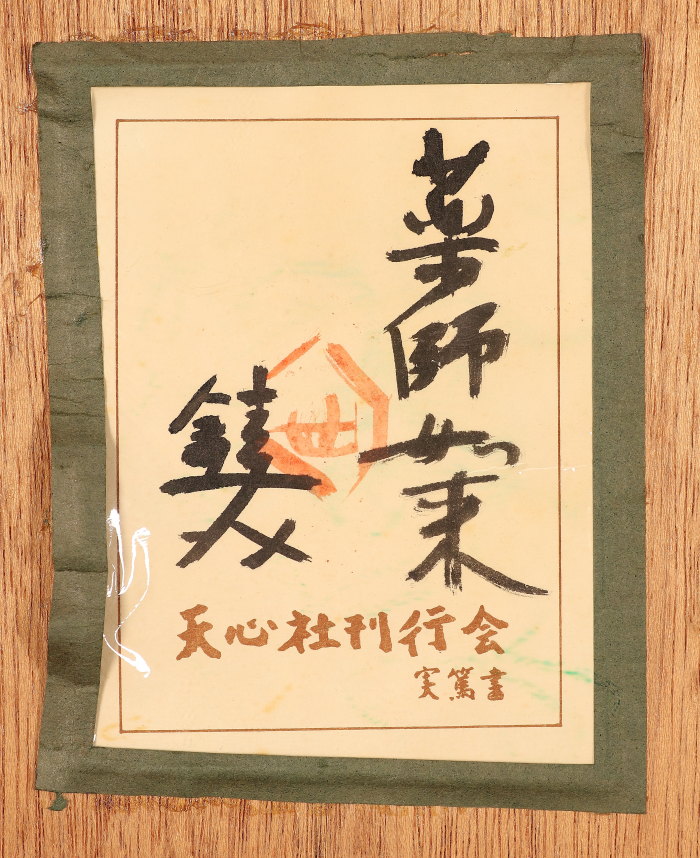 薬師如来
天心社刊行会
実篤書